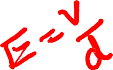 E = V/d